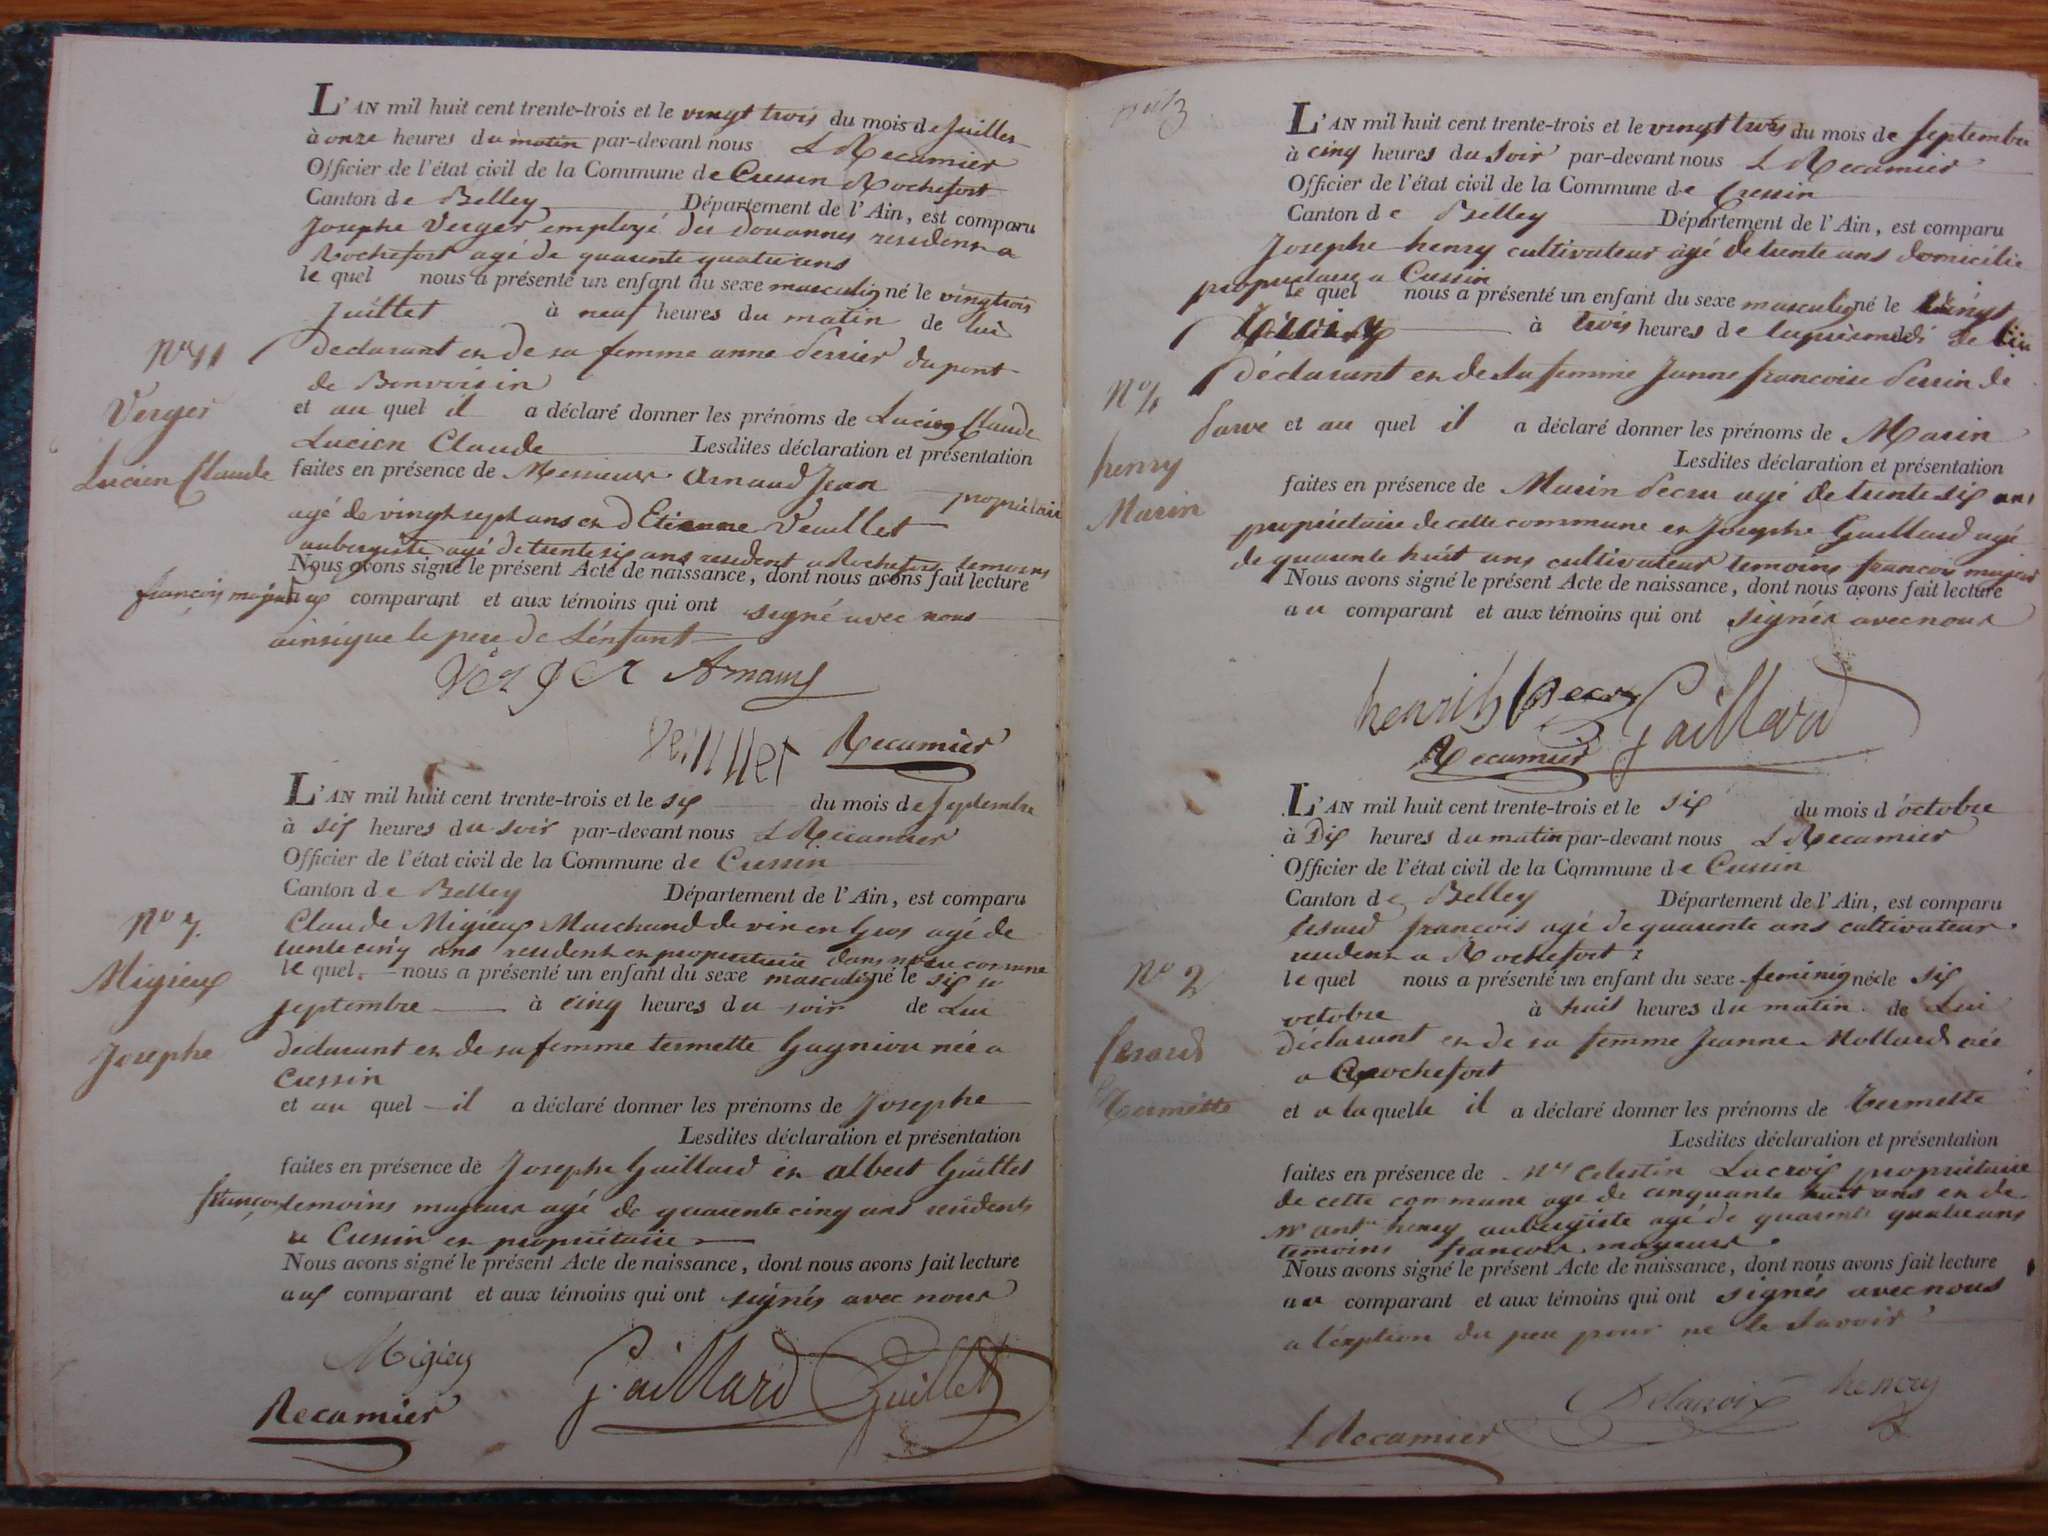 L'AN mil huit cent trente-trois et le vingt trois du mois de Juillet
à onze heures du matin par-devant nous L Recamier
Officier de l'état civil de la Commune de Cressin Rochefort
Canton de Belley Département de l'Ain, est comparu
Josephe Verger employé des Douannes resident a
Rochefort agé de quarente quatre ans
le quel nous a présenté un enfant du sexe masculin né le vingtrois
Juillet à neuf heures du matin de lui
declarant et de sa femme anne Perrier du pont
de Bonvoisin
et au quel il a déclaré donner les prénoms de Lucien Claude
Lucien Claude Lesdites déclaration et présentation
faites en présence de Messieurs Arnaud Jean propriétaire
agé de vingt sept ans et d'Etienne Veuillet
aubergiste agé de trente six ans resident a Rochefort temoins
Nous avons signé le présent Acte de naissance, dont nous avons fait lecture
françois majeurs
aux comparant et aux témoins qui ont signé avec nous
ainsique le pere de L'enfant
Verger Arnaud
Veuillet Recamier
Verger
Lucien Claude
L'AN mil huit cent trente-trois et le six du mois de Septembre
à six heures du soir par-devant nous L Recamier
Officier de l'état civil de la Commune de Cressin
Canton de Belley Département de l'Ain, est comparu
Claude Migieux Marchand de vin en Gros agé de
trente cinq ans resident et propriétaire dans notre commune
le quel nous a présenté un enfant du sexe masculin né le six
septembre à cinq heures du soir de Lui
déclarant et de sa femme termette Gagnion née a
Cressin
et au quel il a déclaré donner les prénoms de Josephe
Lesdites déclaration et présentation
faites en présence de Josephe Gaillard et albert Guillet
françois temoins majeurs agé de quarente cinq ans residents
a Cressin et propriétaire
Nous avons signé le présent Acte de naissance, dont nous avons fait lecture
aux comparant et aux témoins qui ont signés avec nous
Migieux
Recamier Gaillard Guillet
No 7.
Migieux
Josephe
L'AN mil huit cent trente-trois et le vingt trois du mois de Septembre
à cinq heures du soir par-devant nous L Recamier
Officier de l'état civil de la Commune de Cressin
Canton de Belley Département de l'Ain, est comparu
Josephe henry cultivateur agé de trente ans domicilié
propriétaire a Cressin
le quel nous a présenté un enfant du sexe masculin né le vingt
à trois heures de l'aprèsmidi de lui
déclarant et de sa femme Janne francoise Perrin de
et au quel il a déclaré donner les prénoms de Marin
Lesdites déclaration et présentation
faites en présence de Marin Decru agé de trente six ans
propriétaire de cette commune et Josephe Gaillard agé
de quarente huit ans cultivateur temoins francois majeurs
Nous avons signé le présent Acte de naissance, dont nous avons fait lecture
au comparant et aux témoins qui ont signés avec nous
Gaillard
Recamier
henry
Marin
L'AN mil huit cent trente-trois et le six du mois d'octobre
à Dix heures du matin par-devant nous L Recamier
Officier de l'état civil de la Commune de Cressin
Canton de Belley Département de l'Ain, est comparu
françois agé de quarente ans cultivateur
resident a Rochefort
le quel nous a présenté un enfant du sexe feminin née le six
octobre à huit heures du matin de Lui
déclarant et de sa femme Jeanne Mollard née
a Rochefort
et a laquelle il a déclaré donner les prénoms de termette
Lesdites déclaration et présentation
faites en présence de Mr Celestin Lacroix propriétaire
de cette commune agé de cinquante huit ans et de
Mr ant. henry aubergiste agé de quarente quatre ans
temoins francois majeurs
Nous avons signé le présent Acte de naissance, dont nous avons fait lecture
au comparant et aux témoins qui ont signés avec nous
a l'exption du peu pour ne le Savoir
Delacroix henry
L Recamier
No 2
termette